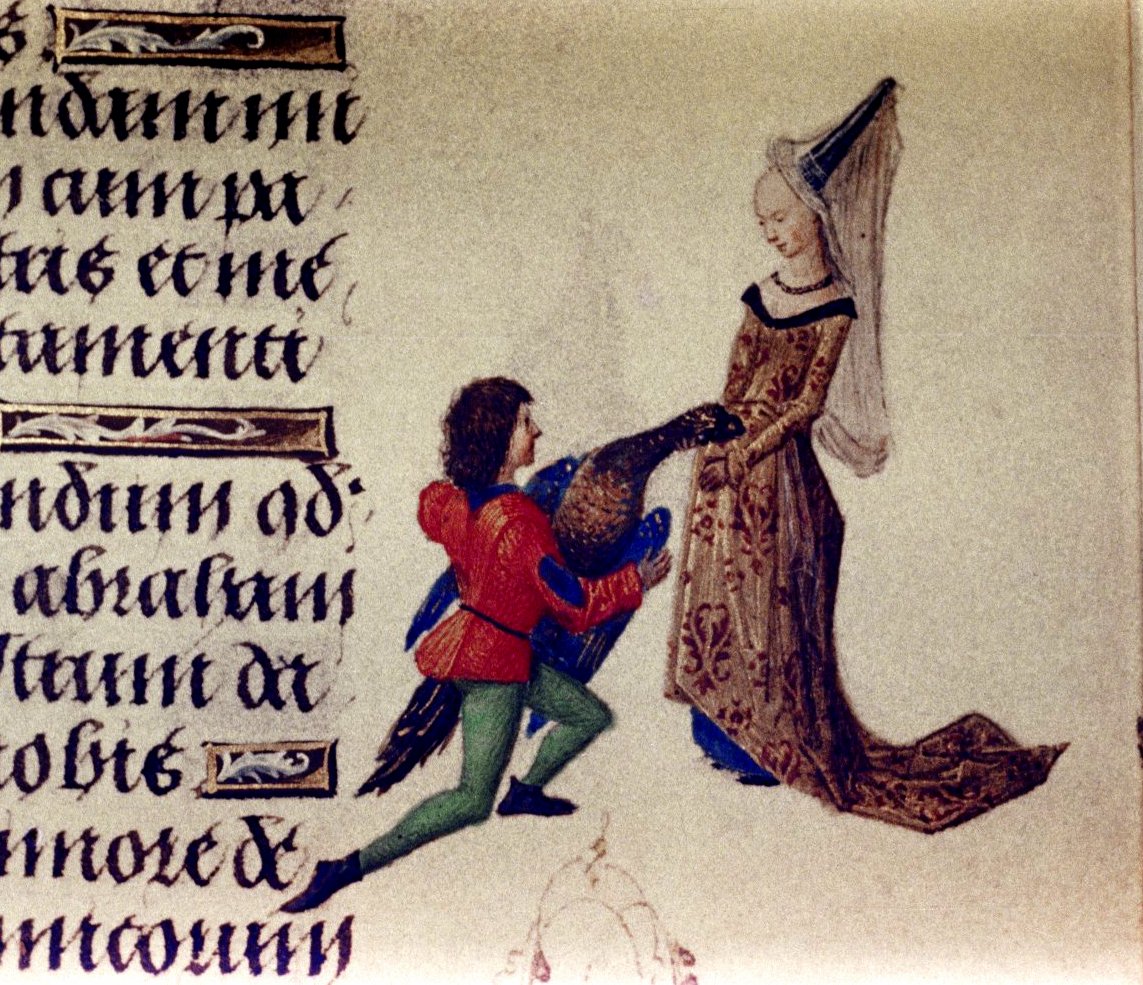 s
ndam mi
m cum pa
tris et me
tamenti
ndum qd
abraham
strum da
nobis
imore de
imicorum